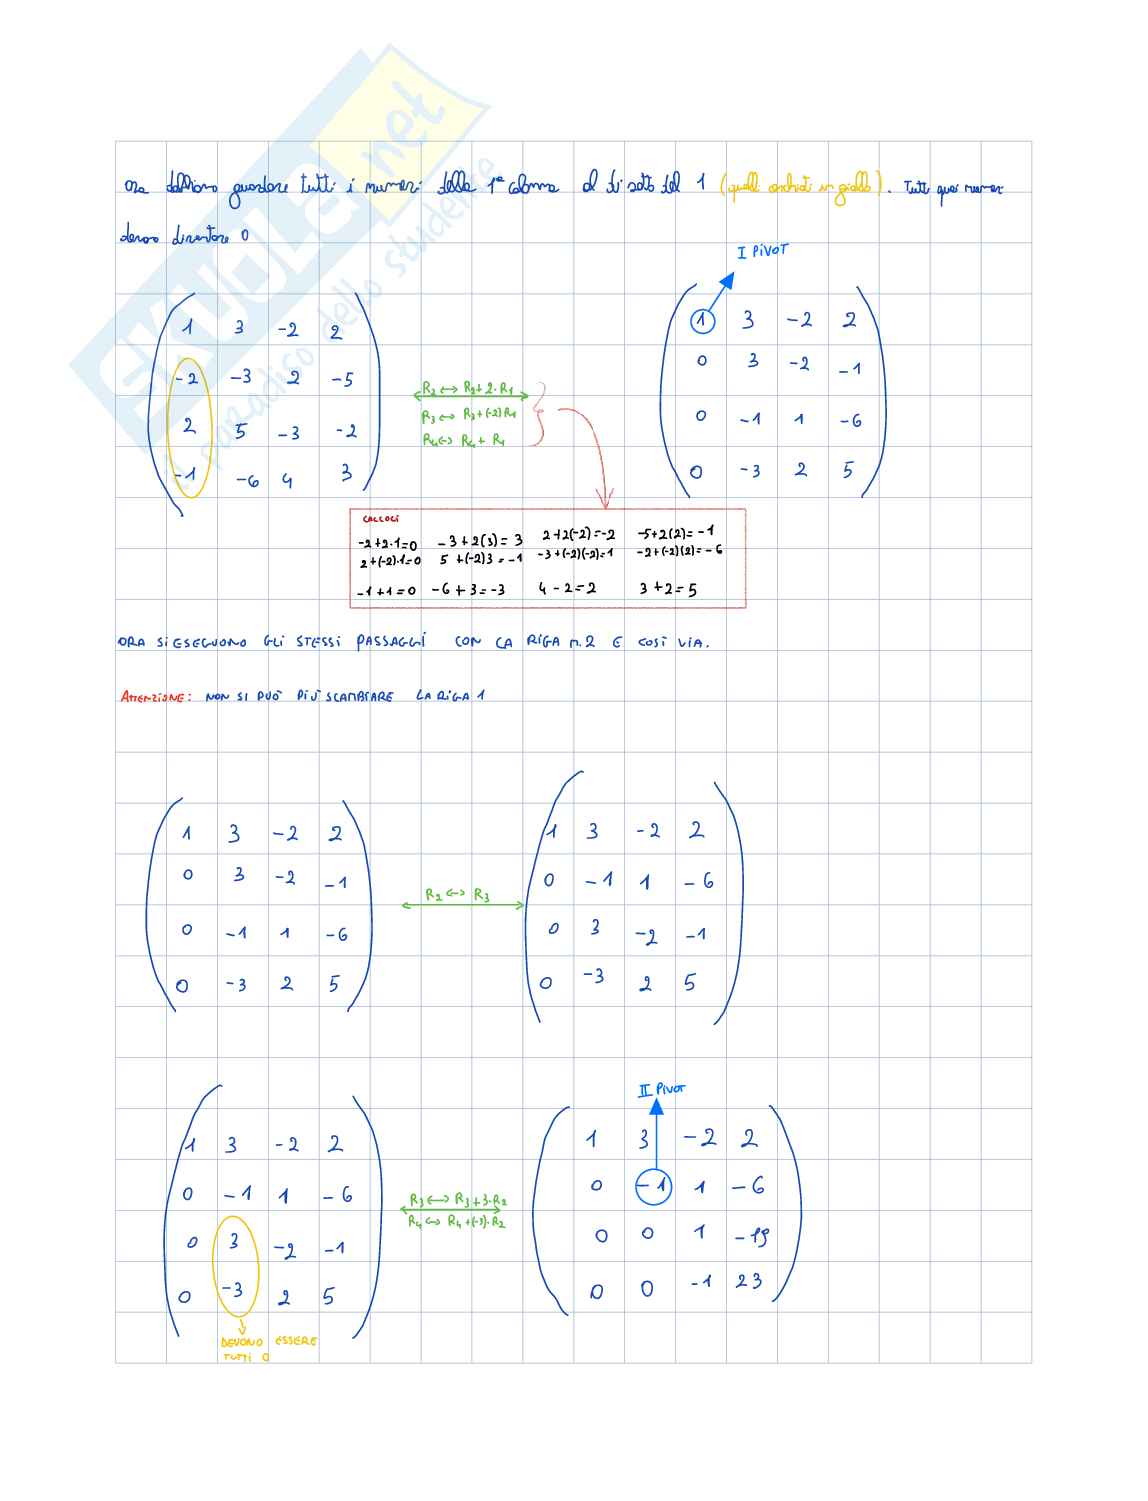 Ora dobbiamo guardare tutti i numeri della 1ª colonna al di sotto del 1 (quelli cerchiati in giallo). Tutti quei numeri
devono diventare 0
I PIVOT
1 3 -2 2
-2 -3 2 -5
2 5 -3 -2
-1 -6 4 3
R2 ↔ R2+2·R1
R3 ↔ R3+(-2)R1
R4 ↔ R4 + R1
1 3 -2 2
0 3 -2 -1
0 -1 1 -6
0 -3 2 5
CALCOLI
-2+2·1=0 -3+2(3)=3 2+2(-2)=-2 -5+2(2)=-1
2+(-2)·1=0 5+(-2)3=-1 -3+(-2)(-2)=1 -2+(-2)(2)=-6
-1+1=0 -6+3=-3 4-2=2 3+2=5
ORA SI ESEGUONO GLI STESSI PASSAGGI CON LA RIGA n.2 E COSÌ VIA.
ATTENZIONE: NON SI PUÒ PIÙ SCAMBIARE LA RIGA 1
1 3 -2 2
0 3 -2 -1
0 -1 1 -6
0 -3 2 5
R2 ↔ R3
1 3 -2 2
0 -1 1 -6
0 3 -2 -1
0 -3 2 5
II PIVOT
1 3 -2 2
0 -1 1 -6
0 3 -2 -1
0 -3 2 5
DEVONO ESSERE
TUTTI 0
R3 ↔ R3+3·R2
R4 ↔ R4+(-3)·R2
1 3 -2 2
0 -1 1 -6
0 0 1 -19
0 0 -1 23
SKUOLA.net
il paradiso dello studente